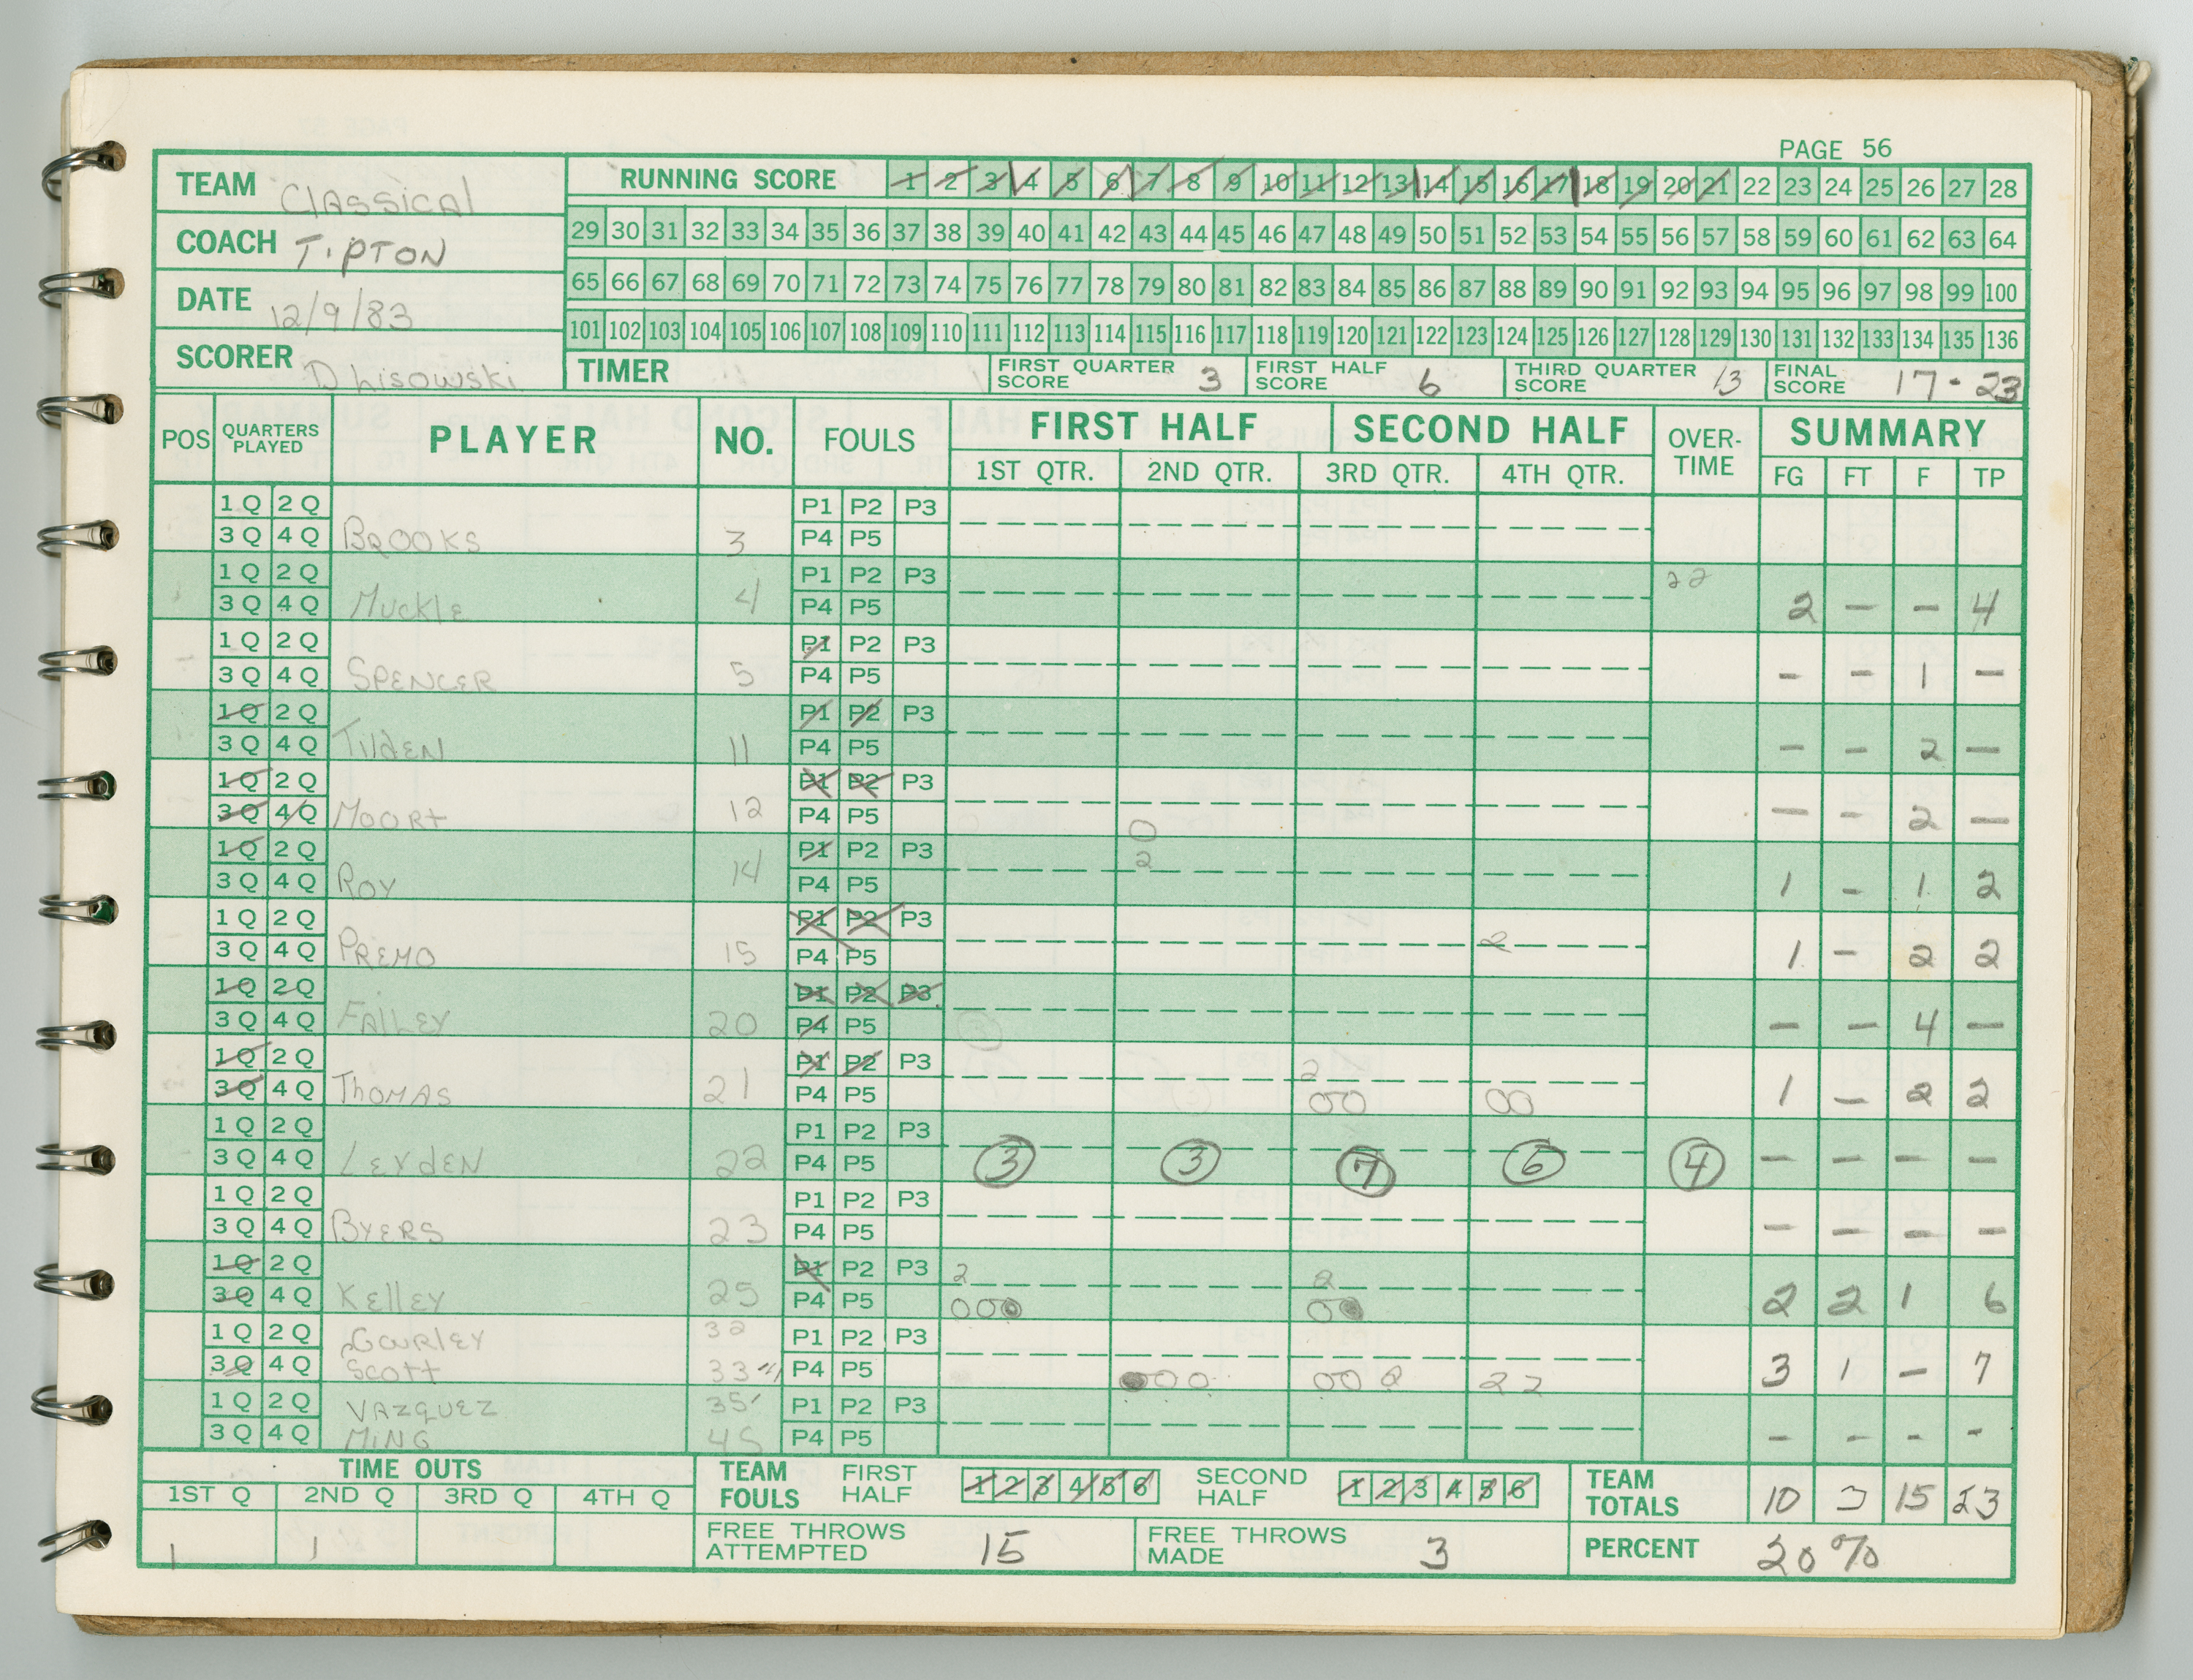 PAGE 56
TEAM Classical
COACH TIPTON
DATE 12/9/83
SCORER D Lisowski
RUNNING SCORE 1 2 3 4 5 6 7 8 9 10 11 12 13 14 15 16 17 18 19 20 21 22 23 24 25 26 27 28
29 30 31 32 33 34 35 36 37 38 39 40 41 42 43 44 45 46 47 48 49 50 51 52 53 54 55 56 57 58 59 60 61 62 63 64
65 66 67 68 69 70 71 72 73 74 75 76 77 78 79 80 81 82 83 84 85 86 87 88 89 90 91 92 93 94 95 96 97 98 99 100
101 102 103 104 105 106 107 108 109 110 111 112 113 114 115 116 117 118 119 120 121 122 123 124 125 126 127 128 129 130 131 132 133 134 135 136
TIMER FIRST QUARTER SCORE 3 FIRST HALF SCORE 6 THIRD QUARTER SCORE 13 FINAL SCORE 17-23
POS QUARTERS PLAYED PLAYER NO. FOULS FIRST HALF SECOND HALF OVER-TIME SUMMARY
1ST QTR. 2ND QTR. 3RD QTR. 4TH QTR. FG FT F TP
1Q 2Q P1 P2 P3
3Q 4Q BROOKS 3 P4 P5
1Q 2Q P1 P2 P3 22
3Q 4Q MUCKLE 4 P4 P5 2 — — 4
1Q 2Q P1 P2 P3
3Q 4Q SPENCER 5 P4 P5 - - 1 -
1Q 2Q P1 P2 P3
3Q 4Q TildEN 11 P4 P5 - - 2 —
1Q 2Q P1 P2 P3
3Q 4Q MOORt 12 P4 P5 0 — - 2 —
1Q 2Q P1 P2 P3 2
3Q 4Q ROY 14 P4 P5 1 - 1 2
1Q 2Q P1 P2 P3
3Q 4Q PREMO 15 P4 P5 2 1 - 2 2
1Q 2Q P1 P2 P3
3Q 4Q FAllEY 20 P4 P5 — — 4 —
1Q 2Q P1 P2 P3 2
3Q 4Q THOMAS 21 P4 P5 00 00 1 — 2 2
1Q 2Q P1 P2 P3
3Q 4Q LEYdEN 22 P4 P5 3 3 7 6 4 — — — —
1Q 2Q P1 P2 P3
3Q 4Q BYERS 23 P4 P5 — — — —
1Q 2Q P1 P2 P3 2 2
3Q 4Q KEllEY 25 P4 P5 000 00 2 2 1 6
1Q 2Q GOURlEY 32 P1 P2 P3
3Q 4Q SCOTT 33 P4 P5 000 00 2 22 3 1 — 7
1Q 2Q VAZQUEZ 35 P1 P2 P3
3Q 4Q MING 45 P4 P5 - - - -
TIME OUTS TEAM FOULS FIRST HALF 1 2 3 4 5 6 SECOND HALF 1 2 3 4 5 6 TEAM TOTALS 10 3 15 23
1ST Q 2ND Q 3RD Q 4TH Q
1 1 FREE THROWS ATTEMPTED 15 FREE THROWS MADE 3 PERCENT 20%